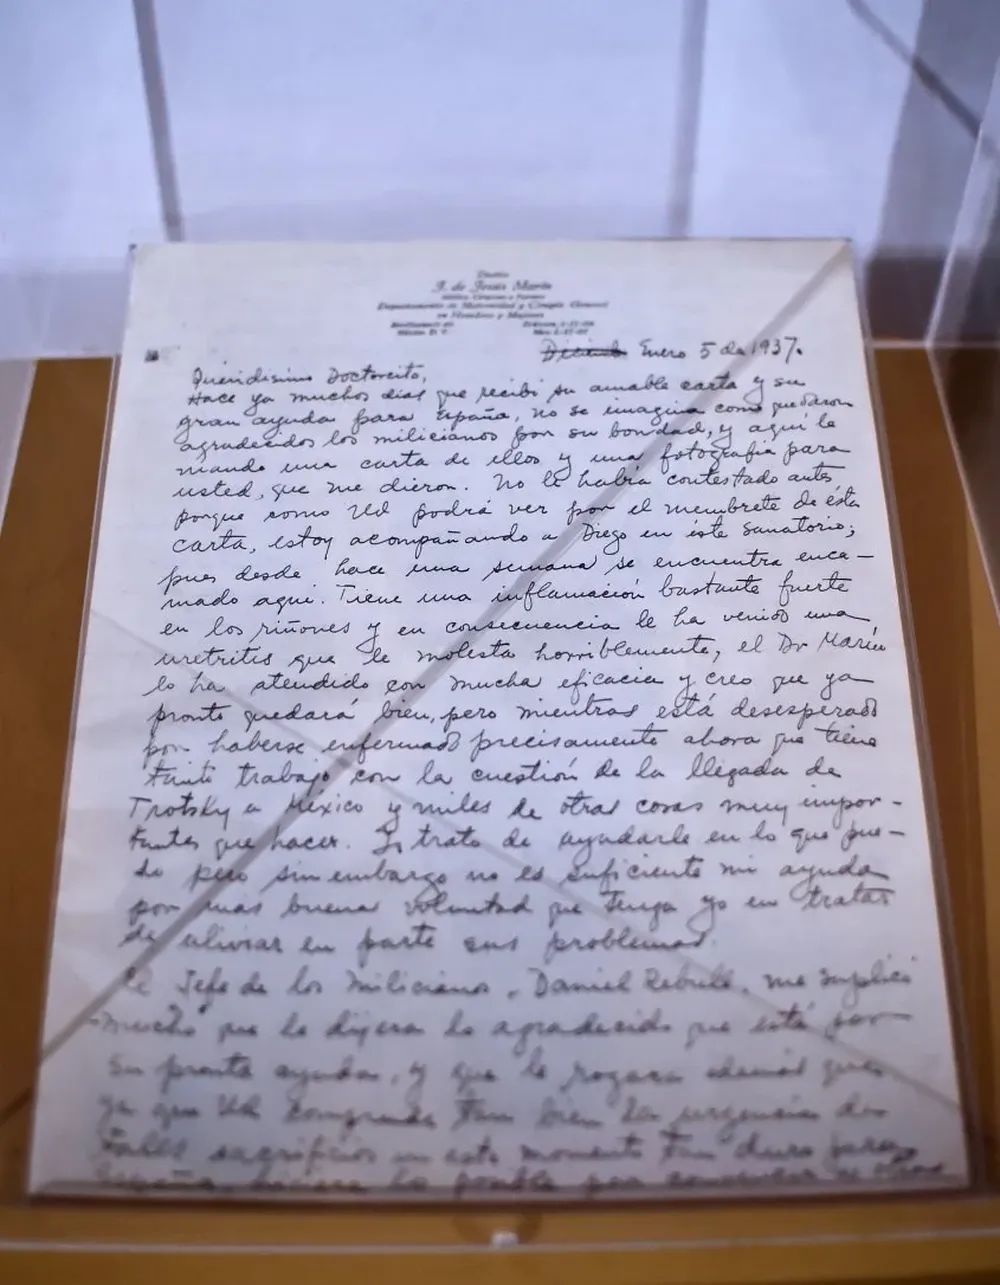 Doctor
J. de Jesús Marín
Médico Cirujano y Partero
Departamento de Maternidad y Cirugía General
en Hombres y Mujeres
México D. F.
Enero 5 de 1937.
Queridisimo Doctorcito,
Hace ya muchos días que recibí su amable carta y su
gran ayuda para España, no se imagina como quedaron
agradecidos los milicianos por su bondad, y aquí le
mando una carta de ellos y una fotografía para
usted, que me dieron. No le había contestado antes,
porque como Ud podrá ver por el membrete de ésta
carta, estoy acompañando a Diego en éste sanatorio;
pues desde hace una semana se encuentra enca-
mado aquí. Tiene una inflamación bastante fuerte
en los riñones y en consecuencia le ha venido una
uretritis que le molesta horriblemente, el Dr Marín
lo ha atendido con mucha eficacia y creo que ya
pronto quedará bien, pero mientras está desesperado
por haberse enfermado precisamente ahora que tiene
tanto trabajo con la cuestión de la llegada de
Trotsky a México y miles de otras cosas muy impor-
tantes que hacer. Yo trato de ayudarle en lo que pue-
do pero sin embargo no es suficiente mi ayuda
por mas buena voluntad que tenga yo en tratar
de aliviar en parte sus problemas.
El Jefe de los milicianos, Daniel Rebull, me suplicó
mucho que le dijera lo agradecido que está por
su pronta ayuda, y que le rogara además que
ya que Ud comprende tan bien la urgencia de
tales sacrificios en este momento tan duro para
España, hiciera lo posible por convencer a otros